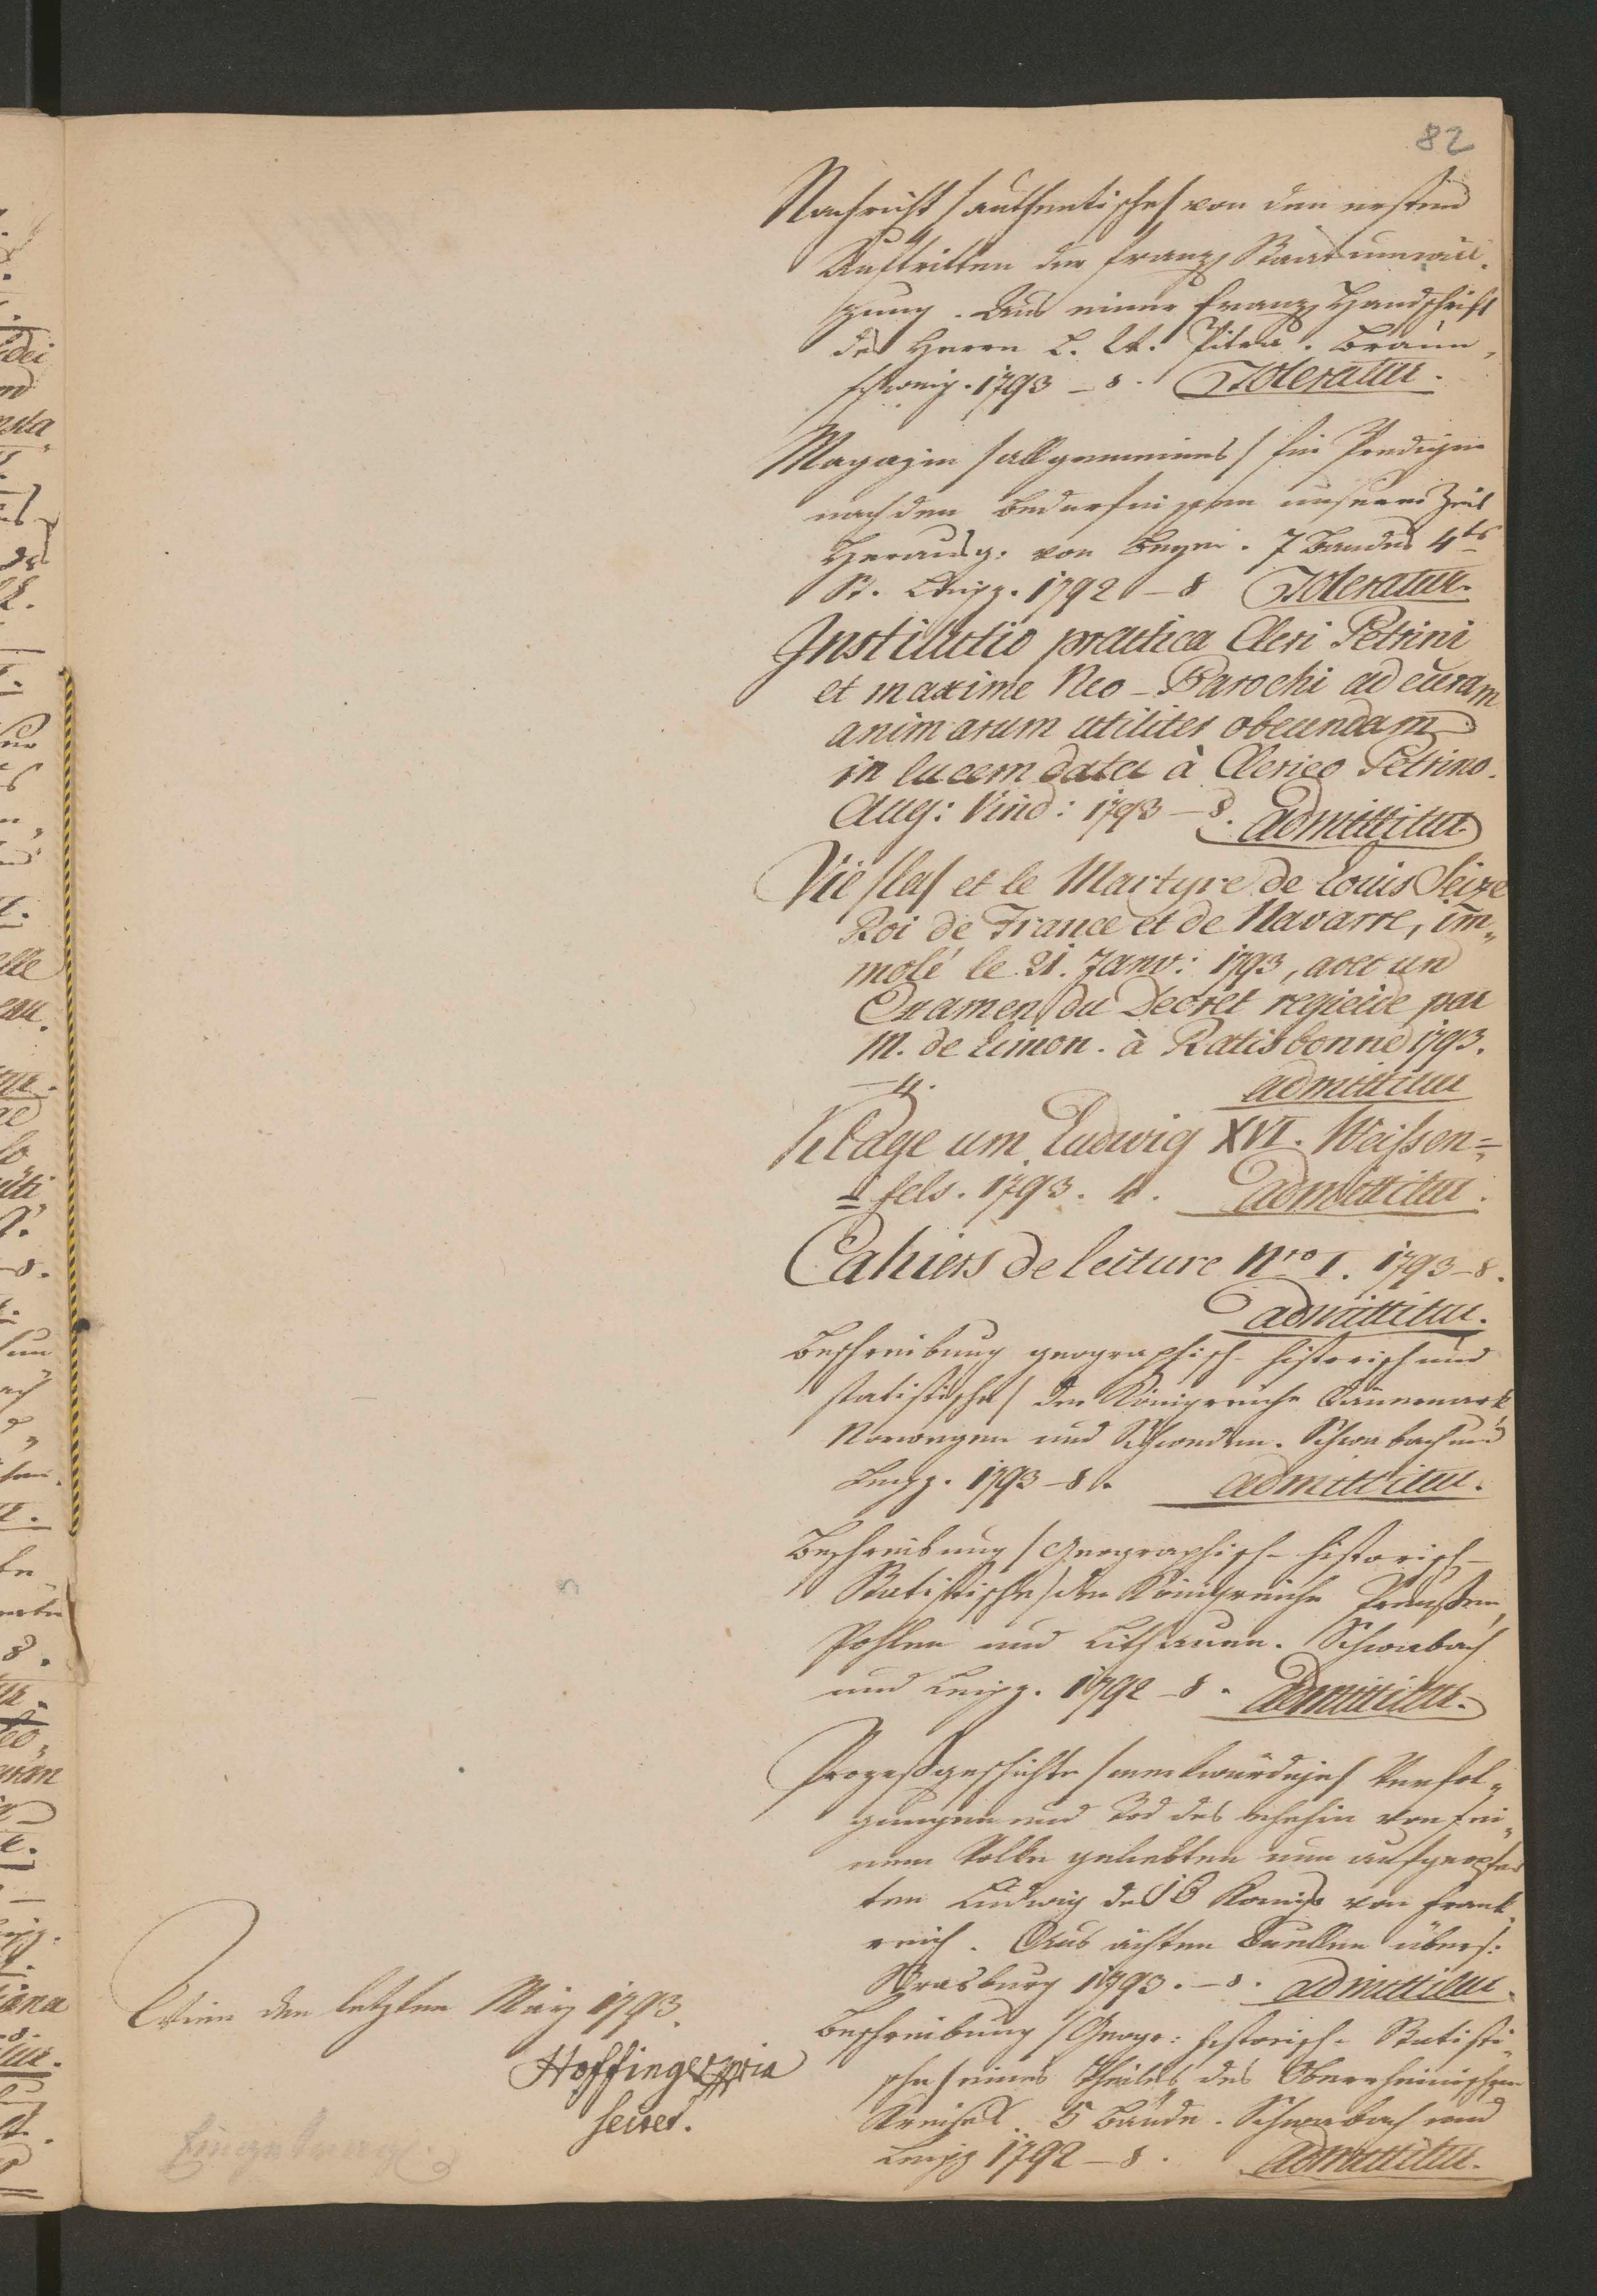 82
Nachricht /authentische/ von den ersten
Auftritten der franz. Staatsumwäl-
zung. Aus einer franz. Handschrift
des Herrn L. W. Pitra. Braun-
schweig. 1793 – 8. Toleratur.
Magazin /allgemeines/ für Prediger
nach den Bedürfnissen unserer Zeit
Herausg. von Beyer. 7 Bandes 4tes
St. Leipz. 1792 – 8 Toleratur.
Institutio practica Cleri Petrini
et maxime Neo-Parochi ad curam
animarum utiliter obeundam
in lucem data à Clerico Petrino.
Aug: Vind: 1793 – 8. admittitur
Vie /la/ et le Martyre de Louis Seize
Roi de France et de Navarre, im„
molé le 21. Janv: 1793, avec un
Examen du Decret regicide par
M. de Limon. à Ratisbonne 1793.
– 4. admittitur
Klage um Ludwig XVI. Weißen=
=fels. 1793. 4. admittitur.
Cahiers de lecture Nro I. 1793 – 8.
admittitur.
Beschreibung geographisch-historisch und
statistische/ der Königreiche Dännemark
Norwegen und Schweden. Schwabach und
Leipz. 1793 – 8. admittitur.
Beschreibung /Geographisch-historisch-
Statistische/ der Königreiche Preußen,
Pohlen und Litthauen. Schwabach
und Leipz. 1792 – 8. admittitur.
Prozeßgeschichte /merkwürdige/ Verfol„
gungen und Tod des ehehin von sei„
nem Volke geliebten nun aufgeopfer
ten Ludwig des 16 Königs von Frank„
reich. Aus ächten Quellen übers:
Strasburg 1793. – 8. admittitur.
Beschreibung /Geogr: historisch-Statisti„
sche/ eines Theiles des Oberrheinischen
Kreises. 5 Bände. Schwabach und
Leipz 1792 – 8. admittitur.
Wien den letzten März 1793.
Hoffinger mpria